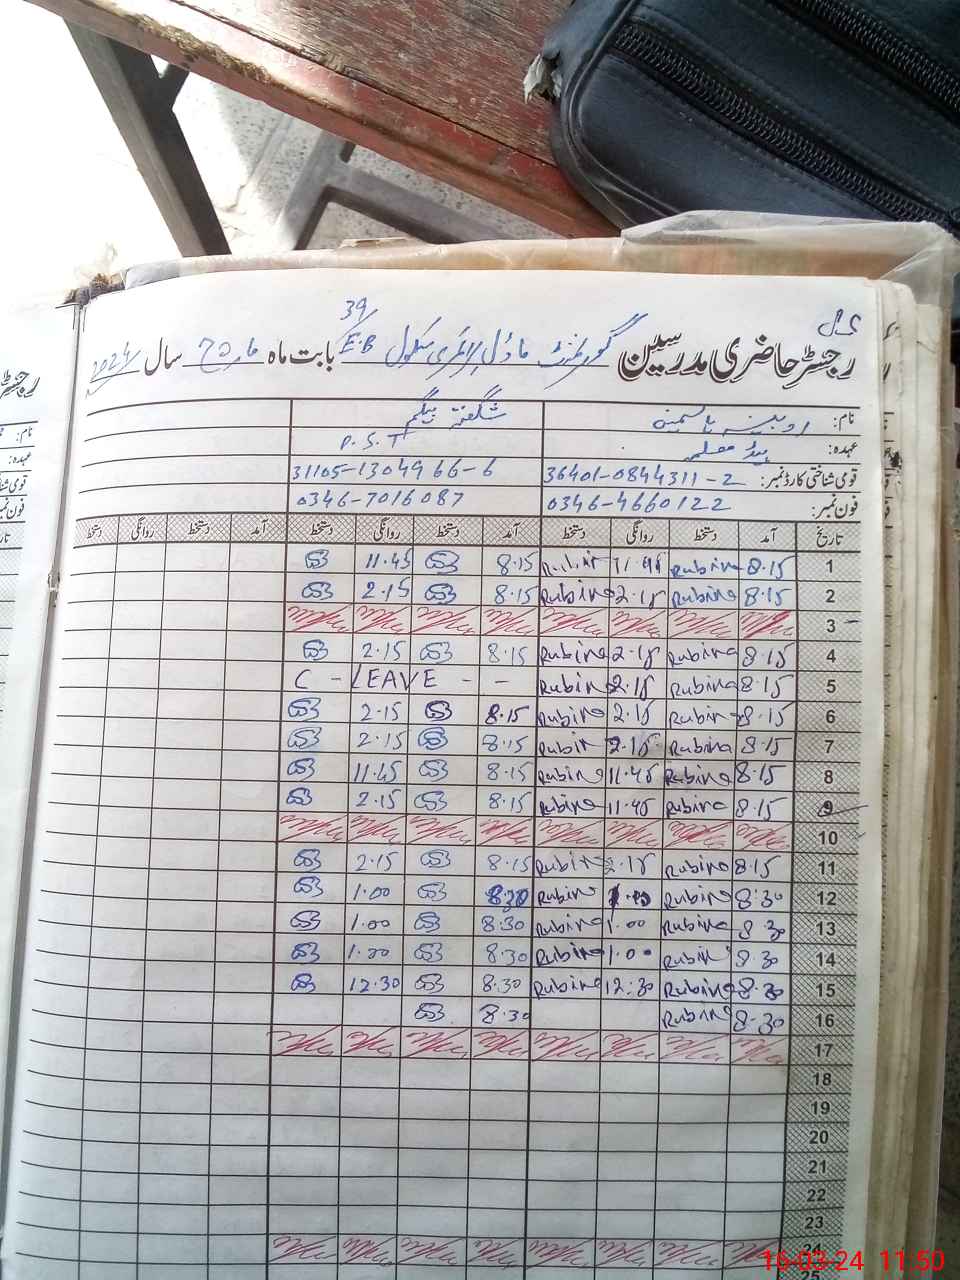 39
رجسٹر حاضری مدرسین گورنمنٹ ماڈل پرائمری سکول E.B بابت ماہ مارچ سال 2024
نام: روبینہ یاسمین شگفتہ بیگم
عہدہ: ہیڈ معلمہ P.S.T
قومی شناختی کارڈ نمبر: 36401-0844311-2 31105-1304966-6
فون نمبر: 0346-4660122 0346-7016087
تاریخ آمد دستخط روانگی دستخط آمد دستخط روانگی دستخط آمد دستخط روانگی دستخط
1 8.15 Rubina 11.45 Rubina 8.15 11.45
2 8.15 Rubina 2.15 Rubina 8.15 2.15
3
4 8.15 Rubina 2.15 Rubina 8.15 2.15
5 8.15 Rubina 2.15 Rubina C - LEAVE - -
6 8.15 Rubina 2.15 Rubina 8.15 2.15
7 8.15 Rubina 2.15 Rubina 8.15 2.15
8 8.15 Rubina 11.45 Rubina 8.15 11.45
9 8.15 Rubina 11.45 Rubina 8.15 2.15
10
11 8.15 Rubina 2.15 Rubina 8.15 2.15
12 8:30 Rubina 1.00 Rubina 8.30 1.00
13 8.30 Rubina 1.00 Rubina 8.30 1.00
14 8.30 Rubina 1.00 Rubina 8.30 1.00
15 8.30 Rubina 12:30 Rubina 8.30 12.30
16 8-30 Rubina 8.30
17
18
19
20
21
22
23
24
25
16-03-24 11:50